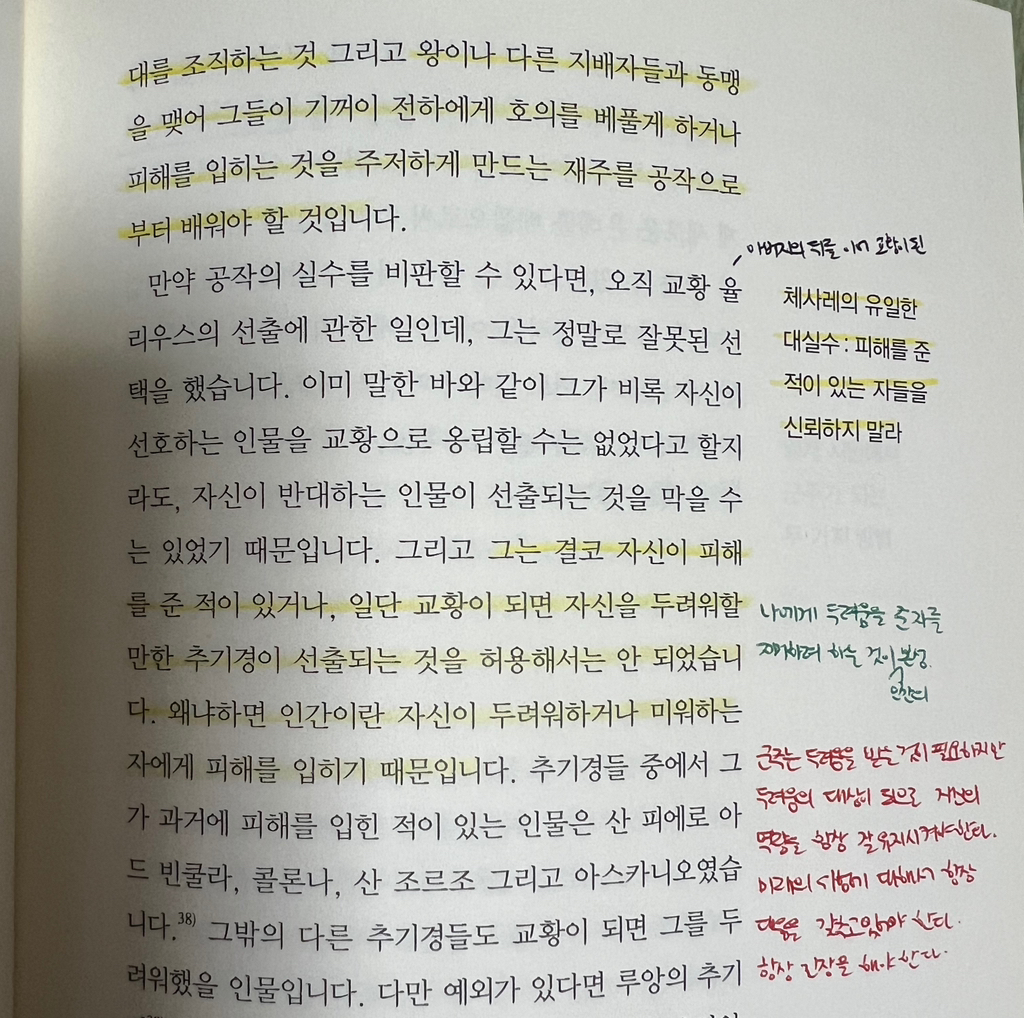 대를 조직하는 것 그리고 왕이나 다른 지배자들과 동맹
을 맺어 그들이 기꺼이 전하에게 호의를 베풀게 하거나
피해를 입히는 것을 주저하게 만드는 재주를 공작으로
부터 배워야 할 것입니다.
만약 공작의 실수를 비판할 수 있다면, 오직 교황 율
리우스의 선출에 관한 일인데, 그는 정말로 잘못된 선
택을 했습니다. 이미 말한 바와 같이 그가 비록 자신이
선호하는 인물을 교황으로 옹립할 수는 없었다고 할지
라도, 자신이 반대하는 인물이 선출되는 것을 막을 수
는 있었기 때문입니다. 그리고 그는 결코 자신이 피해
를 준 적이 있거나, 일단 교황이 되면 자신을 두려워할
만한 추기경이 선출되는 것을 허용해서는 안 되었습니
다. 왜냐하면 인간이란 자신이 두려워하거나 미워하는
자에게 피해를 입히기 때문입니다. 추기경들 중에서 그
가 과거에 피해를 입힌 적이 있는 인물은 산 피에로 아
드 빈쿨라, 콜론나, 산 조르조 그리고 아스카니오였습
니다.38) 그밖의 다른 추기경들도 교황이 되면 그를 두
려워했을 인물입니다. 다만 예외가 있다면 루앙의 추기
아버지의 뒤를 이어 교황이 된
체사레의 유일한
대실수 : 피해를 준
적이 있는 자들을
신뢰하지 말라
나에게 두려움을 준 자를
제거하려 하는 것이 본성.
인간의
군주는 두려움을 받는 것이 필요하지만
두려움의 대상이 되므로 자신의
역량을 항상 잘 유지시켜야한다.
미래의 시항에 대해서 항상
대응을 갖추고 있어야 한다.
항상 긴장을 해야 한다.